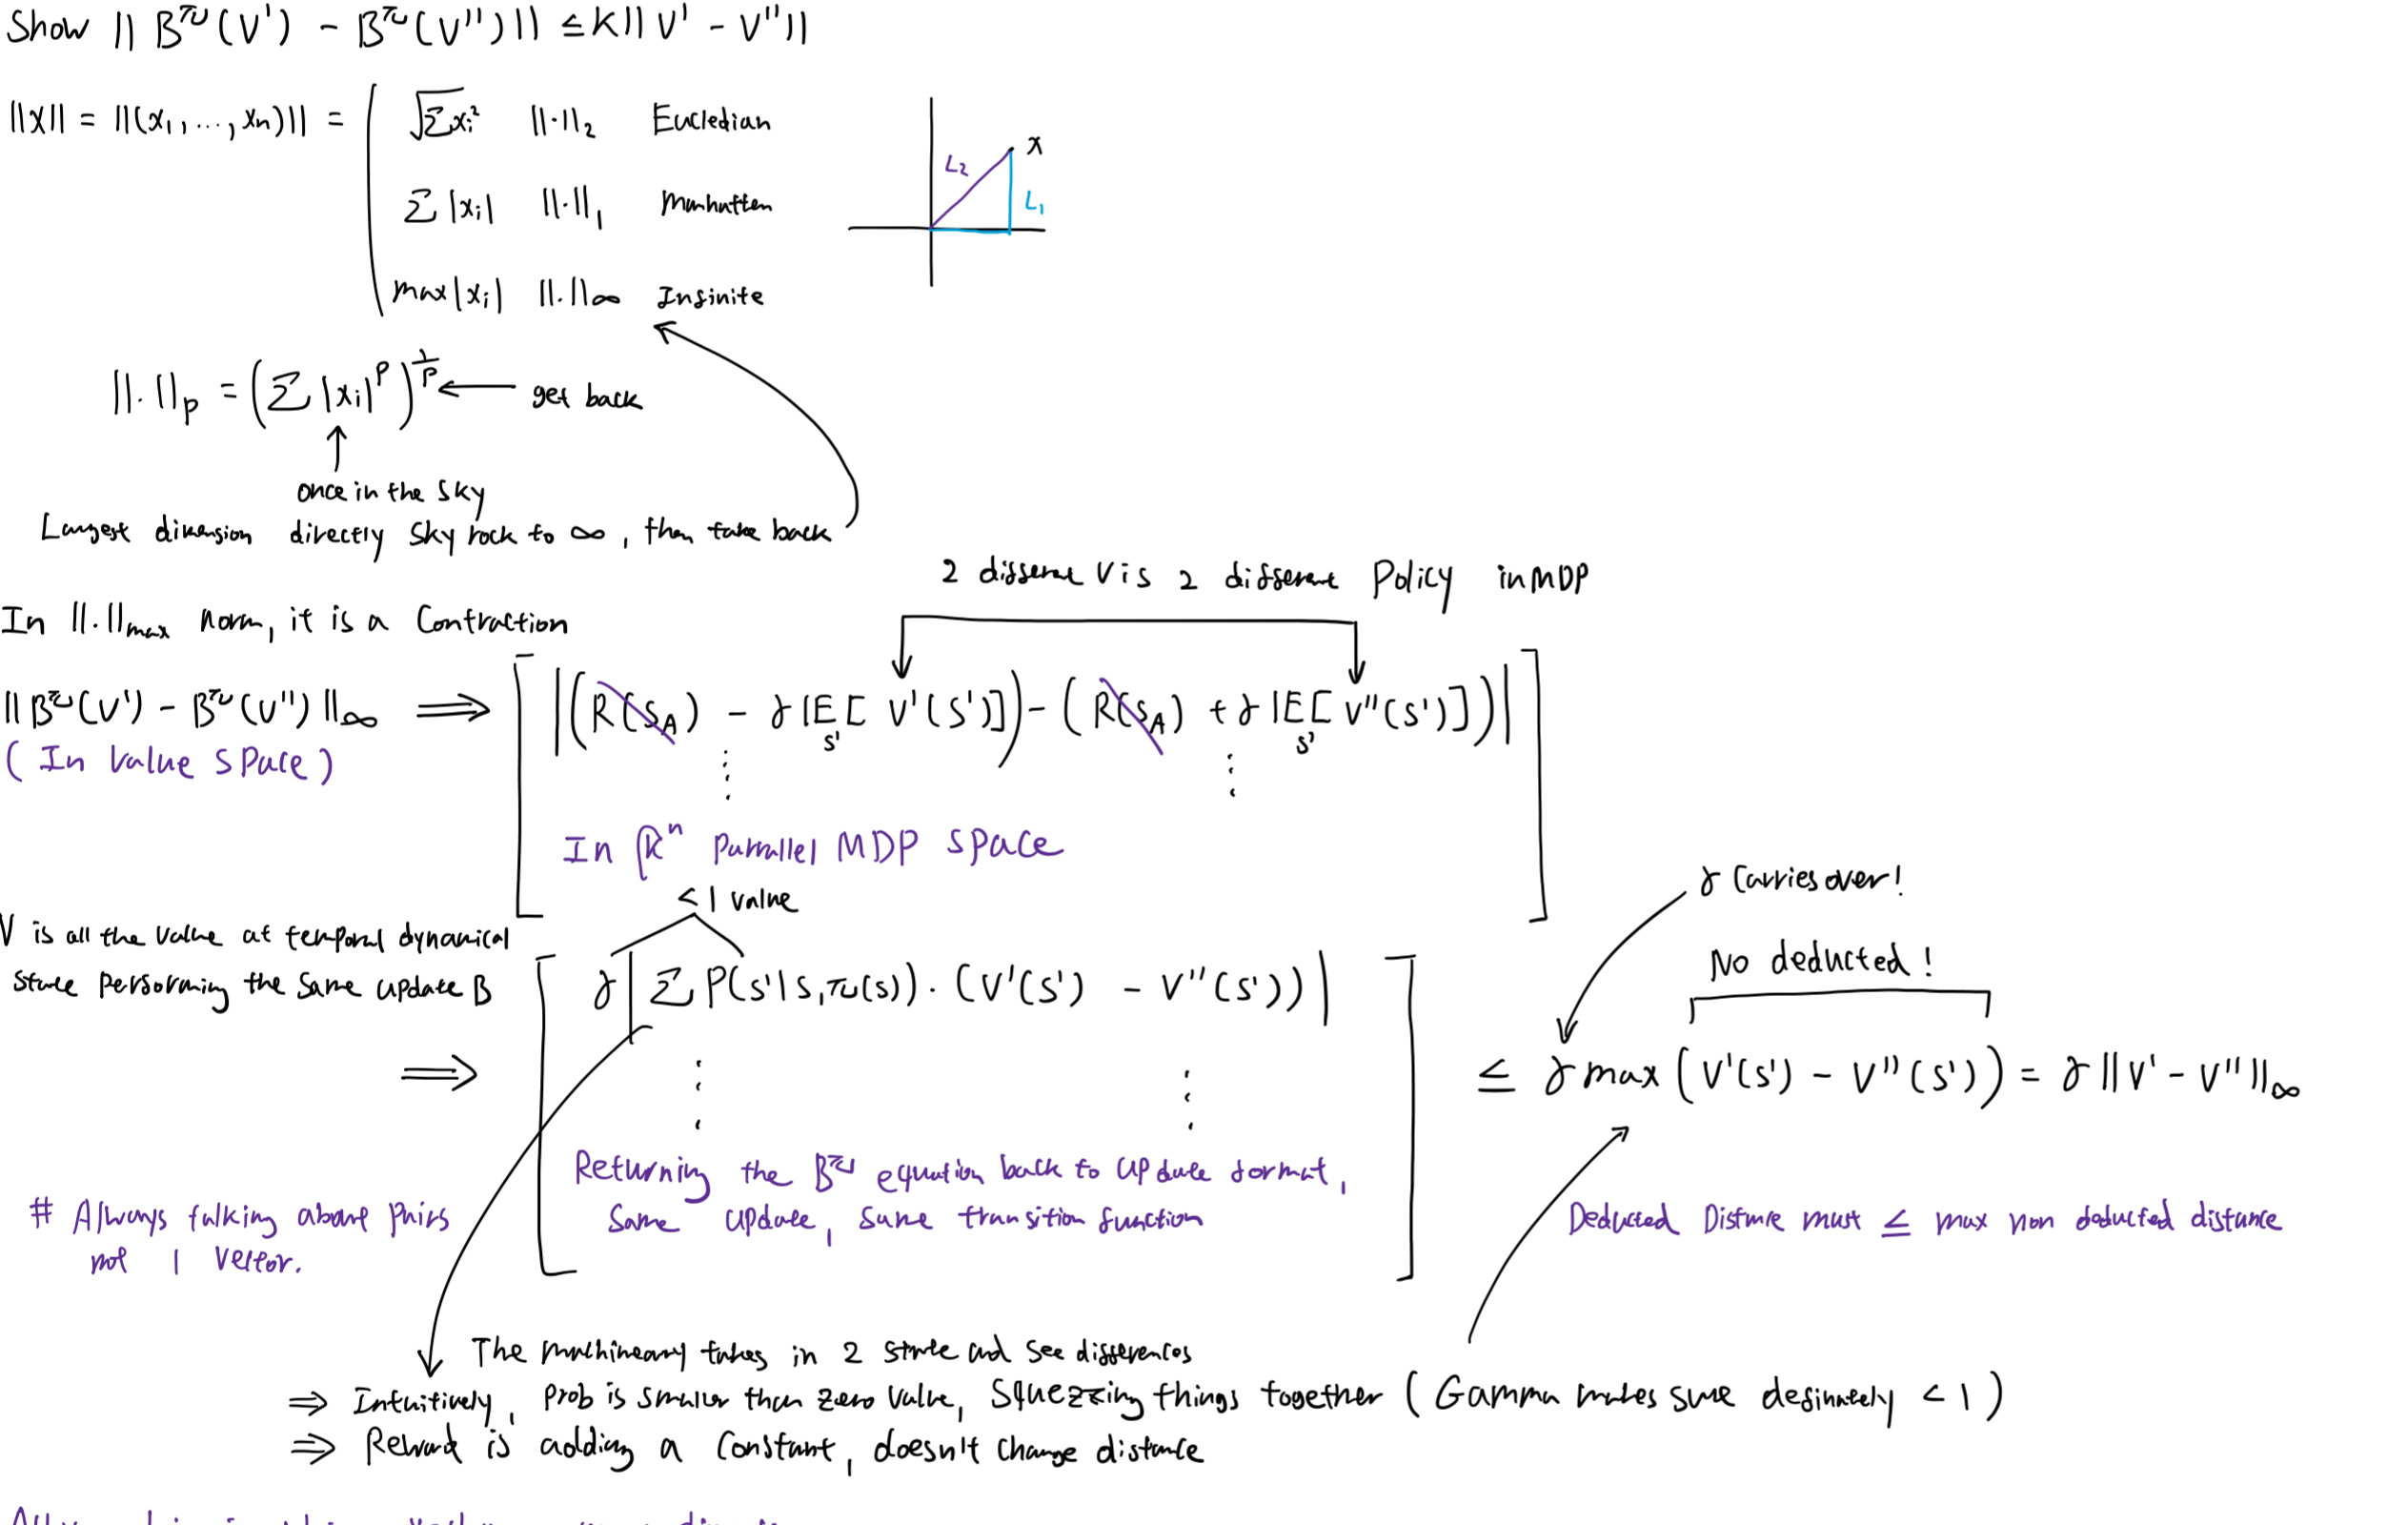 Show || B^π(V') - B^π(V'') || ≤ K || V' - V'' ||
||x|| = ||(x₁, ..., xₙ)|| =
√Σxᵢ² ||·||₂ Eucledian
Σ |xᵢ| ||·||₁ Manhatten
max|xᵢ| ||·||∞ Infinite
x
L₂
L₁
||·||p = (Σ |xᵢ|^p)^(1/p) ← get back
once in the sky
Largest dimension directly sky rock to ∞, then take back
2 different V is 2 different Policy in MDP
In ||·||max norm, it is a Contraction
|| B^π(V') - B^π(V'') ||∞ ⟹ |(R(S_A) - γ E_s'[V'(S')]) - (R(S_A) + γ E_s'[V''(S')])|
(In Value Space)
In ℝⁿ Parrallel MDP Space
γ Carries over!
< 1 value
V is all the value at temporal dynamical
State performing the same update B
No deducted!
γ | Σ P(s'|s,π(s)) · (V'(s') - V''(s')) |
⟹ ≤ γ max (V'(s') - V''(s')) = γ || V' - V'' ||∞
Returning the B^π equation back to update format,
Same update, same transition function
# Always talking about pairs
not 1 vector.
Deducted Distance must ≤ max non deducted distance
The machineary takes in 2 state and see differences
⇒ Intuitively, Prob is smaller than zero value, Squezzing things together (Gamma makes sure definately < 1)
⇒ Reward is adding a Constant, doesn't change distance